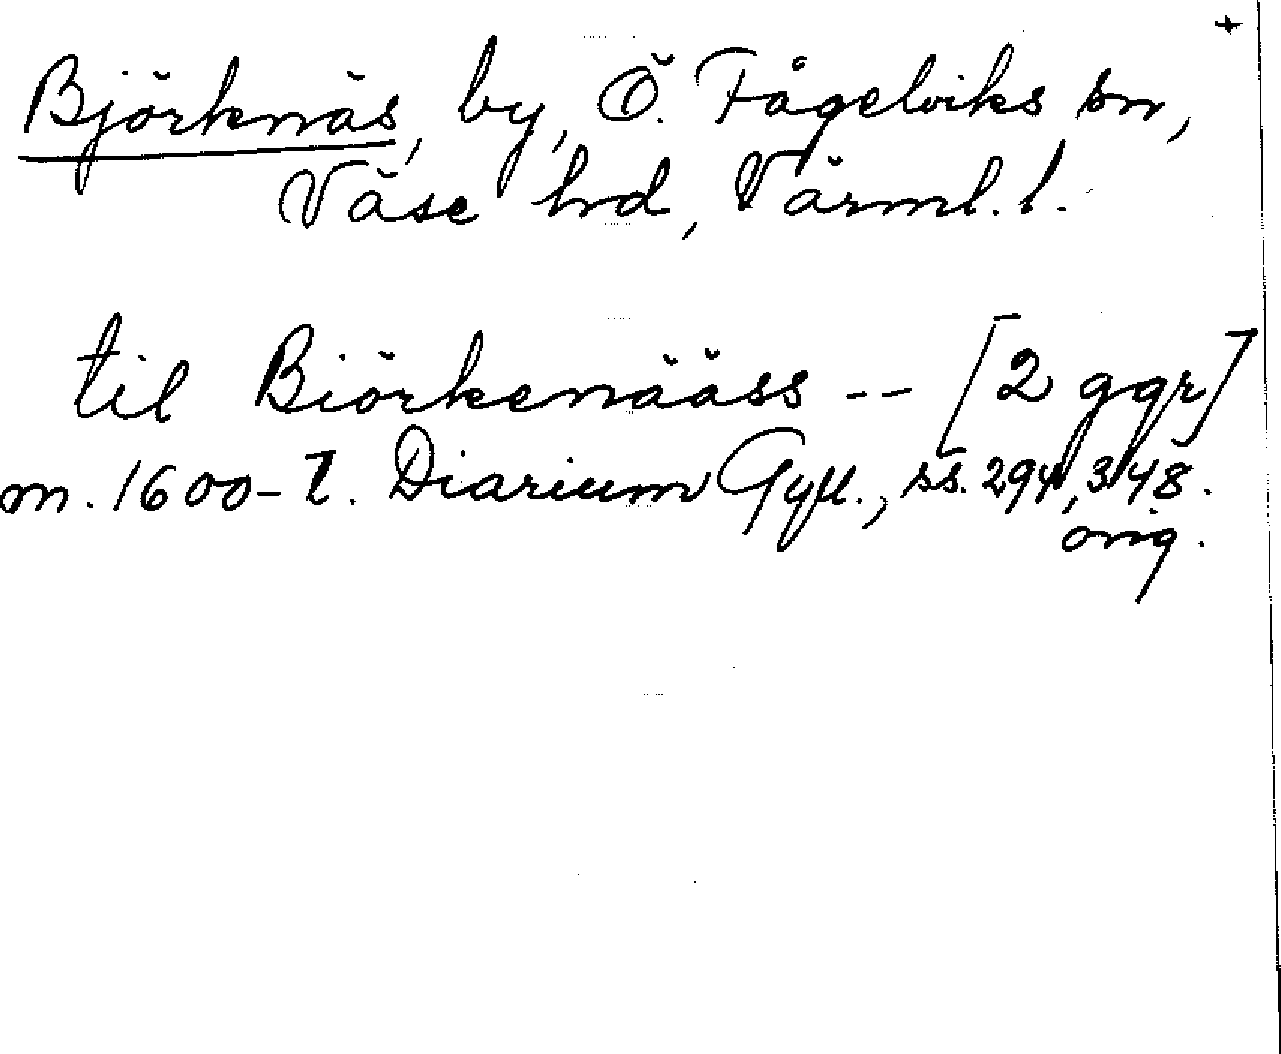 +
Björknäs, by, Ö. Fågelviks sn,
Väse hd, Värml. l.
til Biörkenääss -- [2 ggr]
m. 1600-t. Diarium Gyll., ss. 294, 348.
orig.